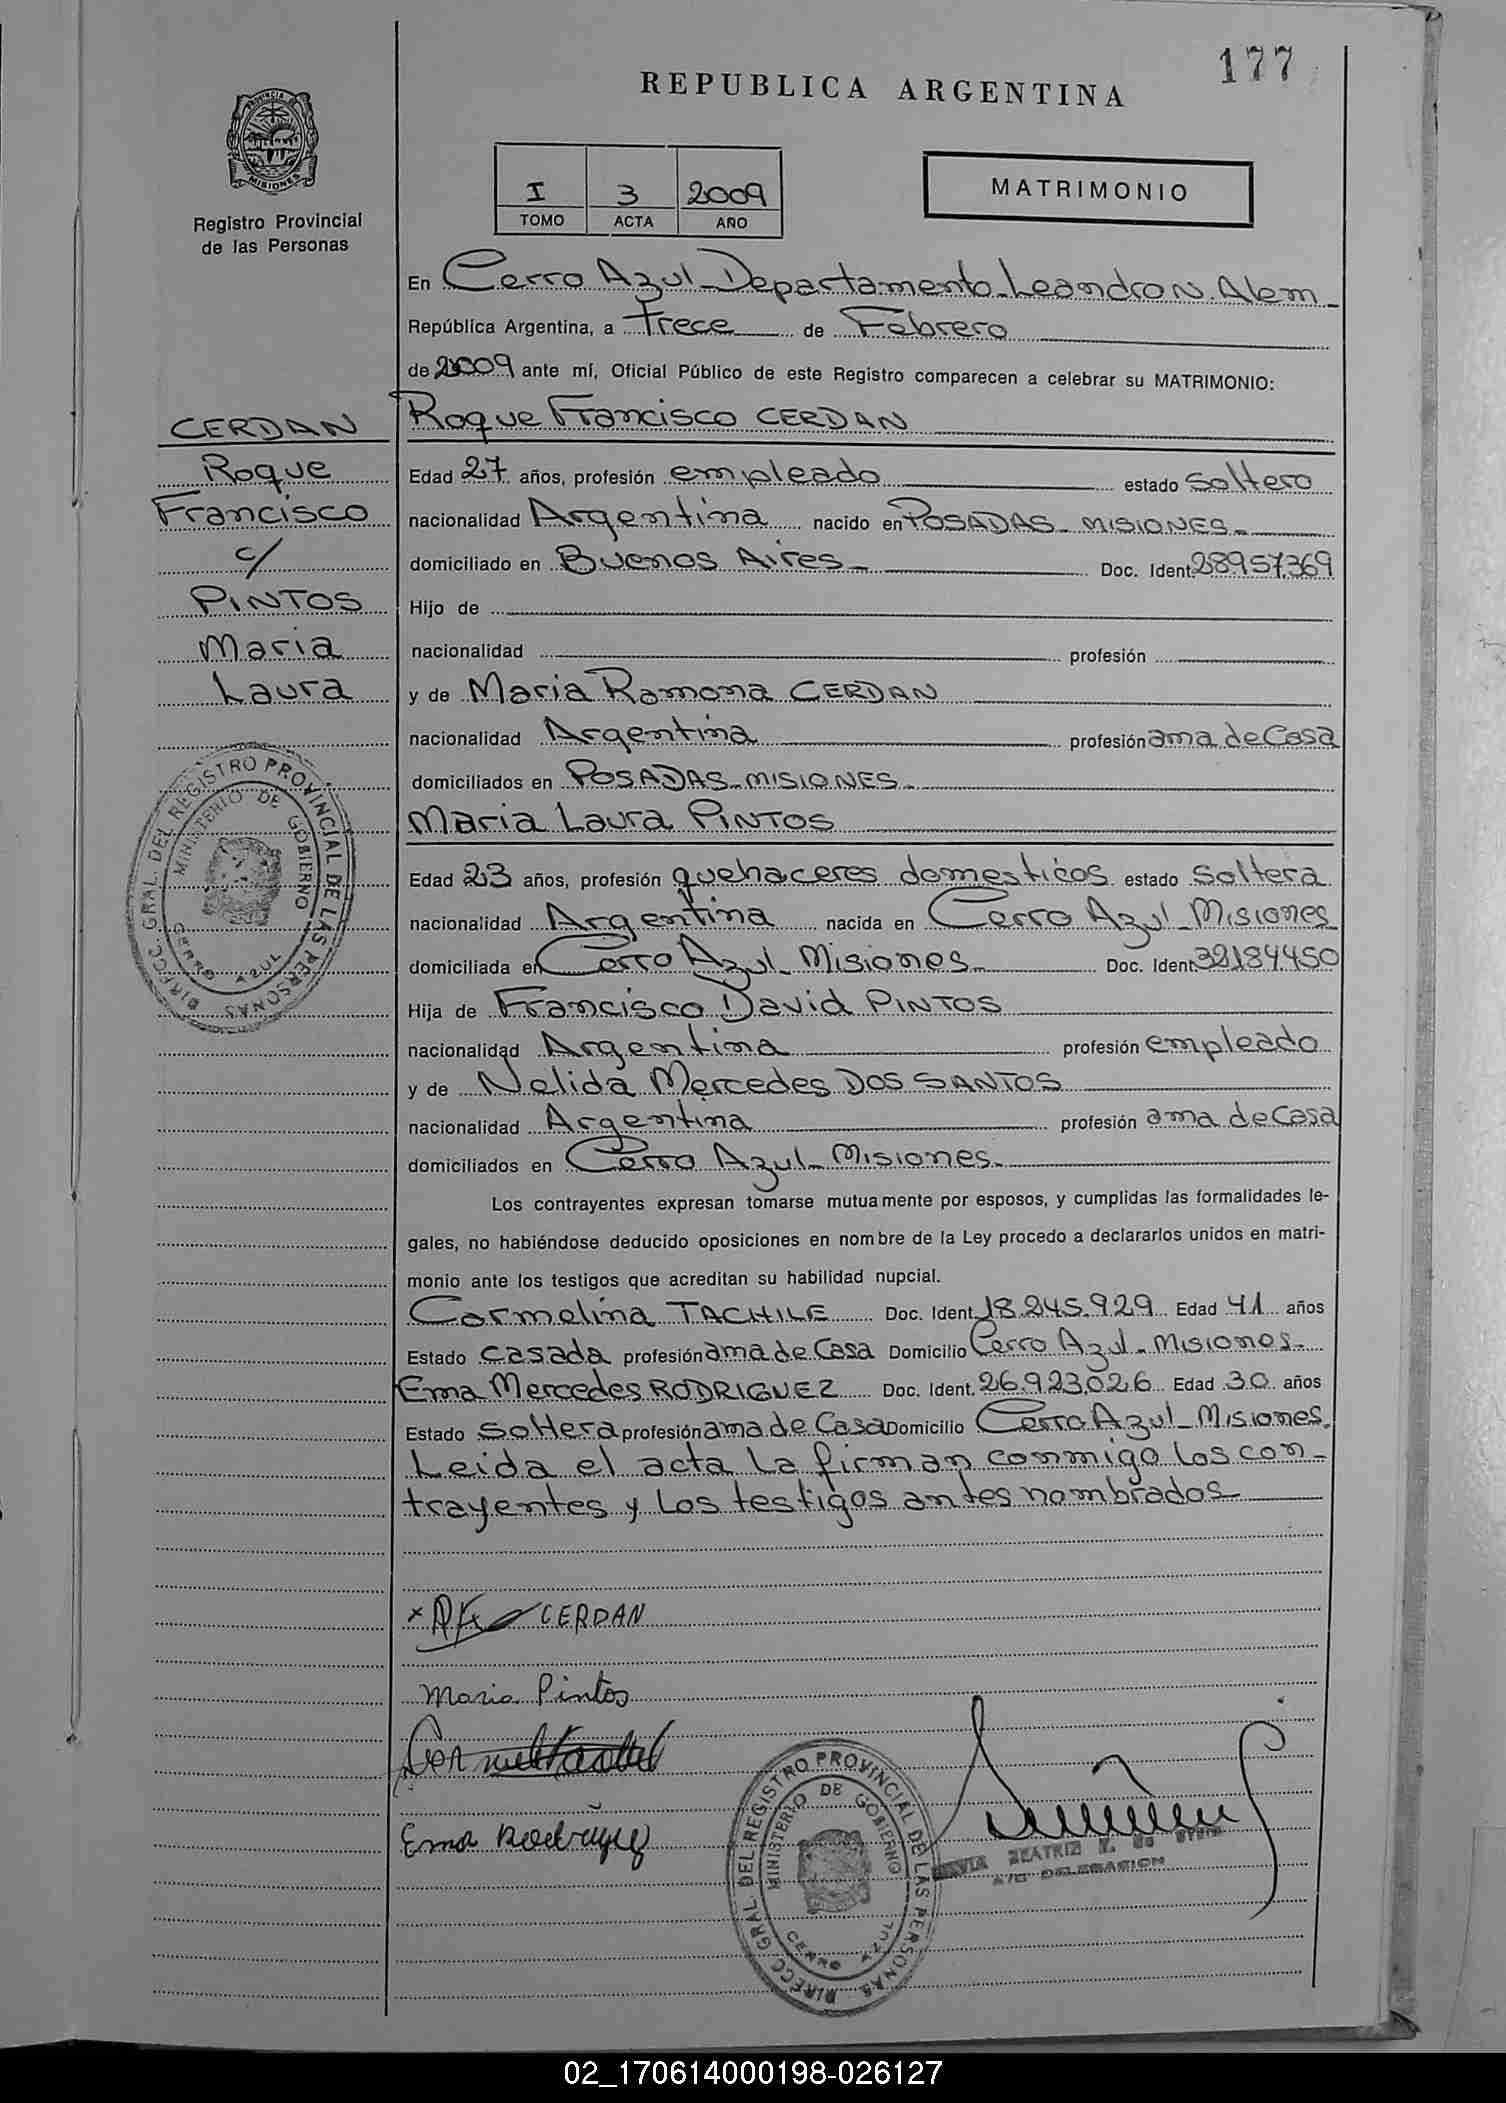 177
REPUBLICA ARGENTINA
PROVINCIA
MISIONES
Registro Provincial
de las Personas
I 3 2009
TOMO ACTA AÑO
MATRIMONIO
En Cerro Azul - Departamento Leandro N. Alem -
República Argentina, a Trece de Febrero
de 2009 ante mí, Oficial Público de este Registro comparecen a celebrar su MATRIMONIO:
CERDAN
Roque
Francisco
c/
PINTOS
Maria
Laura
Roque Francisco CERDAN
Edad 27 años, profesión empleado estado Soltero
nacionalidad Argentina nacido en POSADAS - MISIONES -
domiciliado en Buenos Aires - Doc. Ident. 28957.369
Hijo de
nacionalidad profesión
y de Maria Ramona CERDAN
nacionalidad Argentina profesión ama de Casa
domiciliados en POSADAS - MISIONES -
Maria Laura PINTOS
Edad 23 años, profesión quehaceres domesticos estado Soltera
nacionalidad Argentina nacida en Cerro Azul - Misiones
domiciliada en Cerro Azul - Misiones - Doc. Ident. 32184.450
Hija de Francisco David PINTOS
nacionalidad Argentina profesión empleado
y de Nelida Mercedes DOS SANTOS
nacionalidad Argentina profesión ama de Casa
domiciliados en Cerro Azul - Misiones -
Los contrayentes expresan tomarse mutuamente por esposos, y cumplidas las formalidades le-
gales, no habiéndose deducido oposiciones en nombre de la Ley procedo a declararlos unidos en matri-
monio ante los testigos que acreditan su habilidad nupcial.
Carmelina TACHILE Doc. Ident. 18.245.929 Edad 41 años
Estado Casada profesión ama de Casa Domicilio Cerro Azul - Misiones -
Ema Mercedes RODRIGUEZ Doc. Ident. 26.923.026 Edad 30 años
Estado Soltera profesión ama de Casa Domicilio Cerro Azul - Misiones.
Leida el acta la firman conmigo los con-
trayentes y los testigos antes nombrados
x CERDAN
Maria Pintos
Ema Rodriguez
DIRECC. GRAL. DEL REGISTRO PROVINCIAL DE LAS PERSONAS
MINISTERIO DE GOBIERNO
CERRO AZUL
DIRECC. GRAL. DEL REGISTRO PROVINCIAL DE LAS PERSONAS
MINISTERIO DE GOBIERNO
CERRO AZUL
BEATRIZ
A/C DELEGACION
02_170614000198-026127